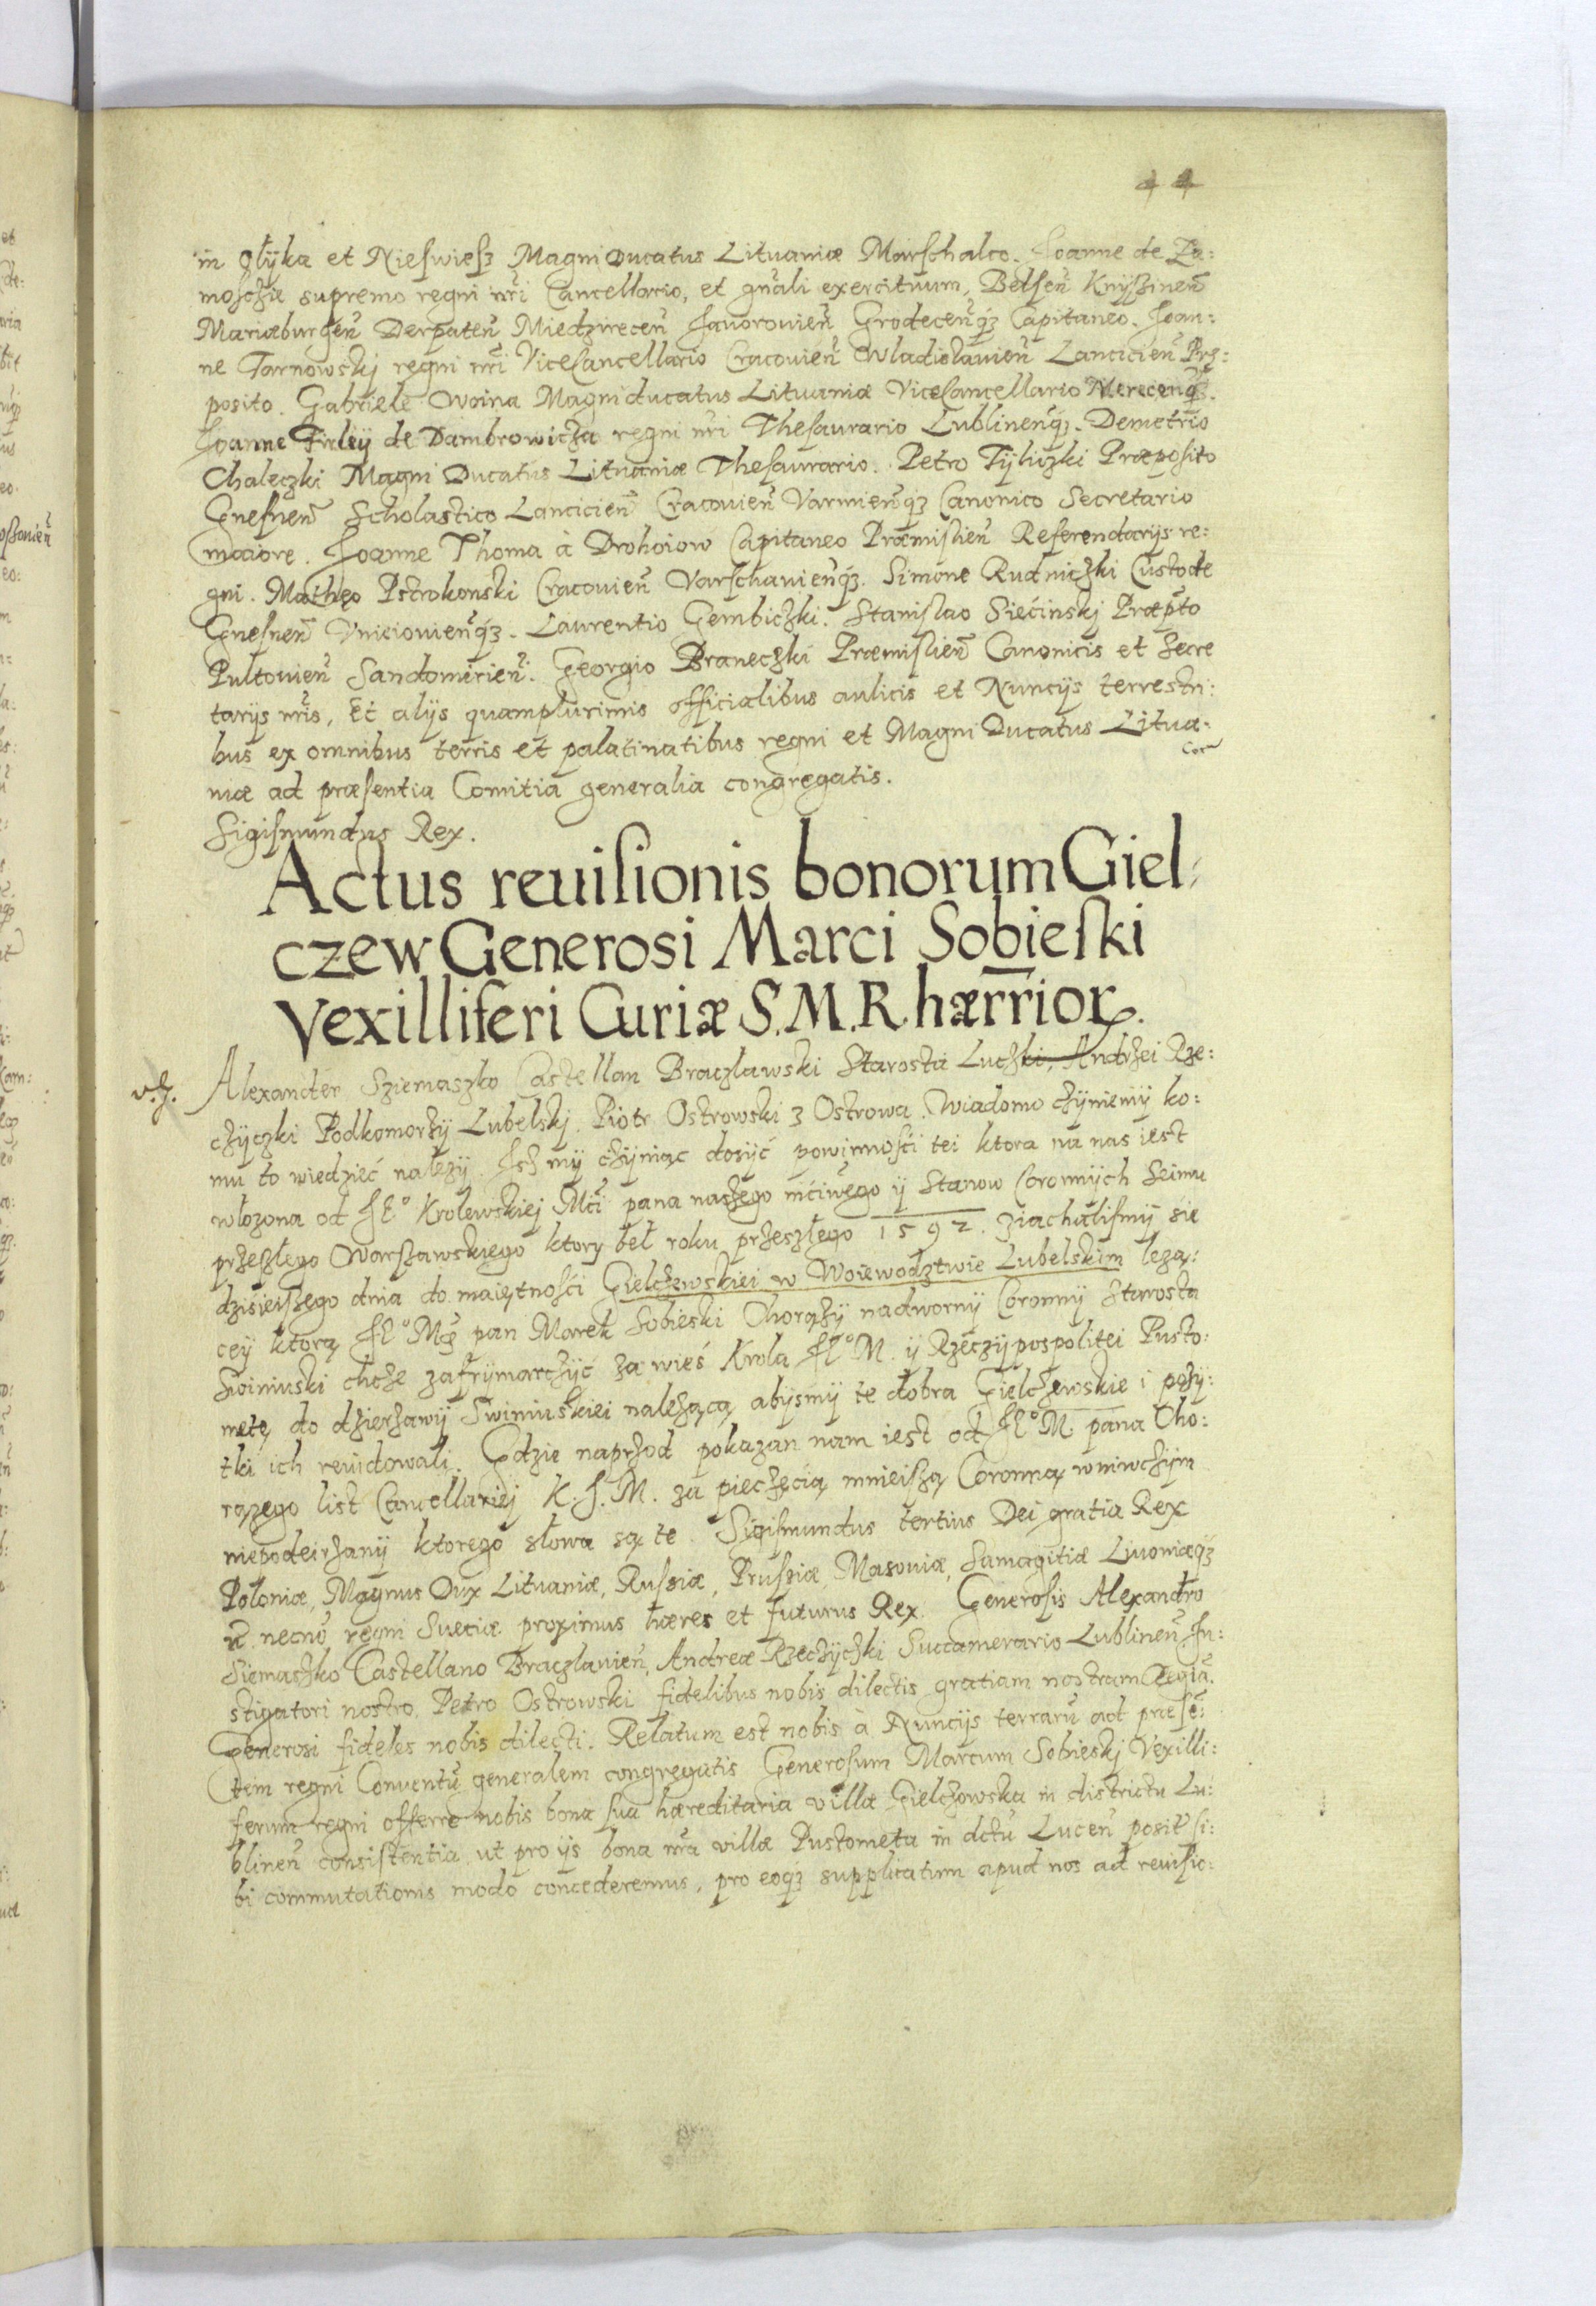 44
in Ołyka et Nieſwieſz Magni Ducatus Lituaniæ Marſchalco. Joanne de Za:
moſchie supremo regni nr̃i Cancellario, et gñali exercituum, Belſeñ Knyſzineñ
Mariæburgeñ Derpateñ Miedzireceñ Javorovieñ Grodeceñq́ꝫ Capitaneo. Joan:
ne Tarnowskj regni nr̃i ViceCancellario Cracovieñ Wladislavieñ Lancicieñ Præ:
posito. Gabriele Woina Magni ducatus Lituaniæ ViceCancellario Mereceñq́ꝫ.
Joanne Firleÿ de Dambrowicza regni nr̃i Theſaurario Lublineñq́ꝫ. Demetrio
Chaleczki Magni Ducatus Lituaniæ Theſaurario. Petro Tÿliczki Præpoſito
Gneſneñ Scholastico Lancicieñ Cracovieñ Varmieñq́ꝫ Canonico Secretario
maiore. Joanne Thoma à Drohoiow Capitaneo Præmiſlieñ Referendarijs re:
gni. Matheo Pstrokonski Cracovieñ Varſchavieñq́ꝫ. Simone Rudniczki Custode
Gneſneñ Vnieiovieñq́ꝫ. Laurentio Gembiczki. Stanislao Siećinskj Præpto
Pultovieñ Sandomirieñ. Georgio Braneczki Præmiſlieñ Canonicis et Secre
tarijs nr̃is, Et alijs quamplurimis officialibus aulicis et Nuncijs terrestri:
bus ex omnibus terris et palatinatibus regni et Magni Ducatus Litua:
niæ ad præſentia Comitia generalia congregatis.
Sigiſmundus Rex.
Actus reuiſionis bonorum Giel:
czew Generosi Marci Sobieſki
Vexilliferi Curiæ S.M.R. hærr̃ioꝝ.
Alexander Sziemaszko Castellan Braczlawski Starosta Luczki, Andrzei Rze:
czÿczki Podkomorzÿ Lubelskj. Piotr Ostrowski z Ostrowa. Wiadomo czÿniemÿ ko:
mu to wiedzieć nalezÿ. Jsz mÿ czÿniąc dosÿć powinnośći tei ktora na nas iest
włozona od JE° Krolewskiej Mći pana naszego mćiwego ÿ Stanow Coronnÿch Seimu
przeszłego Warszawskiego ktory beł roku przeszłego 1592. ziachaliſmÿ się
dzisieiszego dnia do maiętnośći Gielczewskiei w Woiewodztwie Lubelskim lezą:
ceÿ ktorą JE° Mć pan Marek Sobieski Chorązÿ nadwornÿ Coronnÿ Starosta
Swiniuski chcze zafrÿmarczÿć za wieś Krola JE° M. ÿ Rzeczÿpospolitei Pusto:
metę do dzierzawÿ Swiniuskiei nalezącą abÿsmÿ te dobra Gielczewskie i pozÿ:
tki ich revidowali. Gdzie naprzod pokazan nam iest od JE° M. pana Cho:
rązego list Cancellariej K. J. M. za pieczęcią mnieiszą Coronną wniwczÿm
niepodeirzanÿ ktorego słowa są te. Sigiſmundus tertius Dei gratia Rex
Poloniæ, Magnus Dux Lituaniæ, Ruſsiæ, Pruſsiæ, Masoviæ, Samagitiæ Livoniæq́ꝫ
ꝛc̃. necnõ regni Sueciæ proximus hæres et futurus Rex. Generoſis Alexandro
Siemaszko Castellano Braczlavieñ, Andreæ Rzeczÿczki Succamerario Lublineñ In:
stigatori nostro, Petro Ostrowski fidelibus nobis dilectis gratiam nostram Regiã.
Generosi fideles nobis dilecti. Relatum est nobis à Nuncijs terrarũ ad præſẽ:
tem regni Conventũ generalem congregatis Generoſum Marcum Sobieskj Vexilli:
ferum regni offerre nobis bona ſua hæreditaria villæ Gielczowska in districtu Lu:
blineñ consiſtentia, ut pro ijs bona nr̃a villæ Pustometa in dctũ Luceñ posit̃ si:
bi commutationis modo concederemus, pro eoq́ꝫ supplicatum apud nos ad reuiſio: